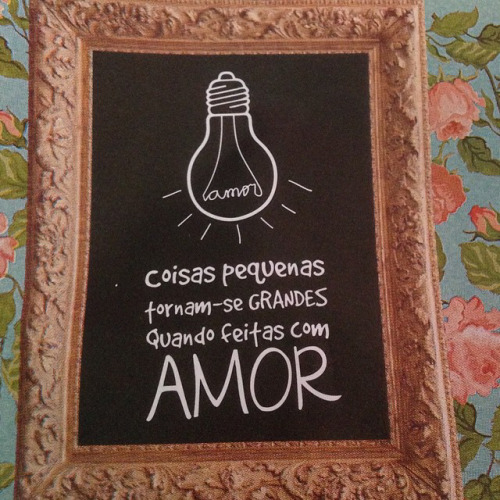 amor
Coisas pequenas
tornam-se GRANDES
Quando feitas com
AMOR